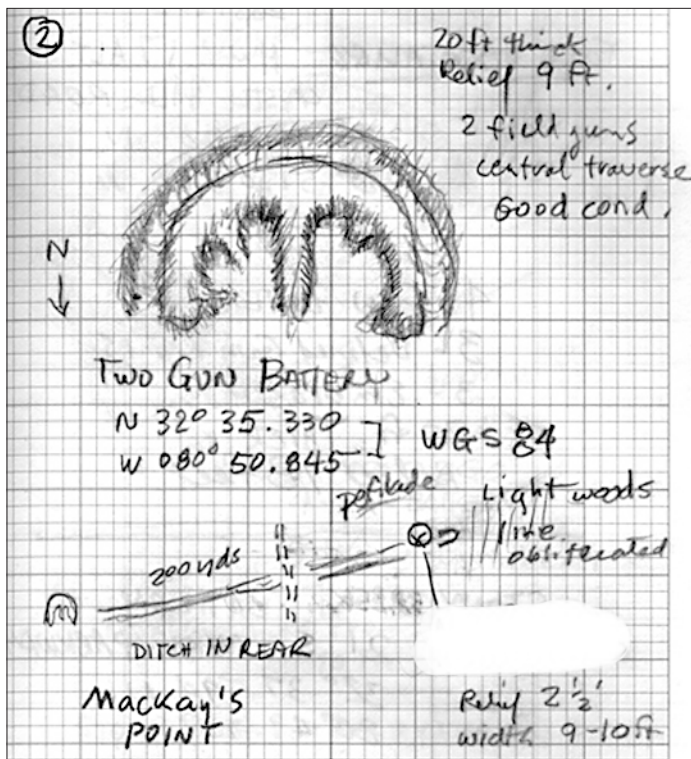 2
20 ft thick
Relief 9 ft.
2 field guns
central traverse
Good cond.
N
TWO GUN BATTERY
N 32° 35.330
W 080° 50.845
WGS 84
Defilade
Light woods
line
obliterated
200 yds
DITCH IN REAR
MacKay's
POINT
Relief 2 1/2'
width 9-10 ft